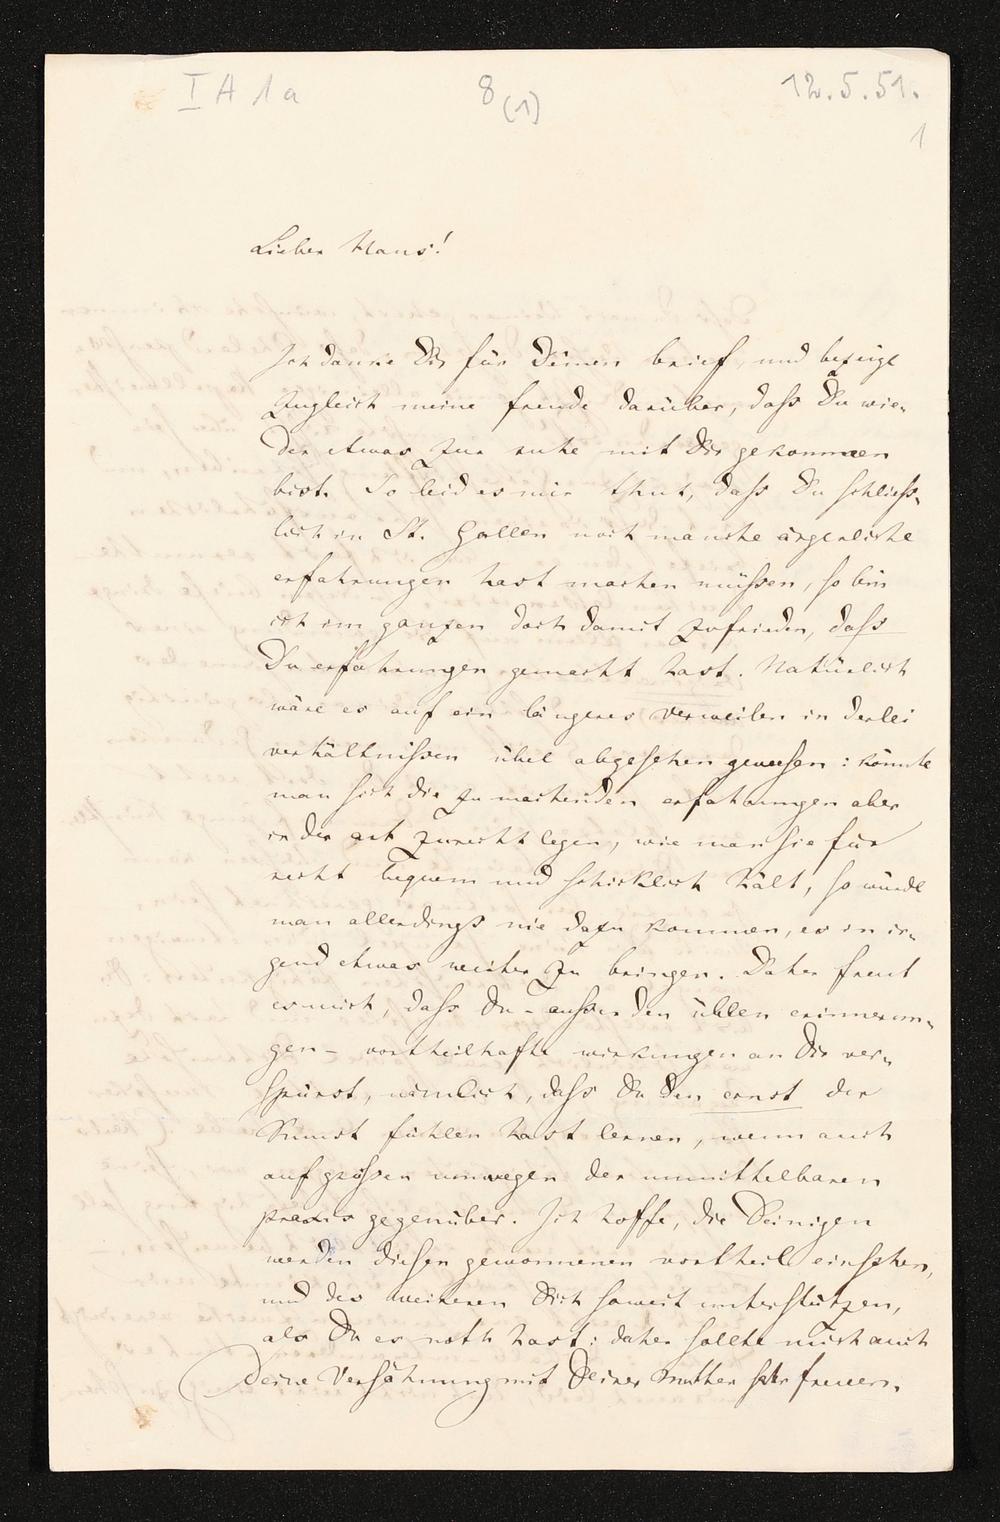 I A 1a 8 (1) 12.5.51.
1
Lieber Hans!
Ich danke Dir für Deinen brief, und bezeige
zugleich meine freude darüber, dass Du wie-
der etwas zur ruhe mit Dir gekommen
bist. So leid es mir thut, dass Du schliess-
lich in St. Gallen noch manche ärgerliche
erfahrungen hast machen müssen, so bin
ich im ganzen doch damit zufrieden, dass
Du erfahrungen gemacht hast. Natürlich
wäre es auf ein längeres verweilen in derlei
verhältnissen übel abgesehen gewesen: könnte
man sich die zu machenden erfahrungen aber
in der art zurecht legen, wie man sie für
recht bequem und schicklich hält, so würde
man allerdings nie dazu kommen, es in ir-
gend etwas weiter zu bringen. Daher freut
es mich, dass Du - ausser den üblen erinnerun-
gen - vortheilhafte wirkungen an Dir ver-
spürst, nämlich, dass Du den ernst der
Kunst fühlen hast lernen, wenn auch
auf grossen umwegen der unmittelbaren
praxis gegenüber. Ich hoffe, die Deinigen
werden diesen gewonnenen vortheil einsehen,
und des weiteren Dich soweit unterstützen,
als Du es noth hast: daher sollte mich auch
Deine Versöhnung mit Deiner Mutter sehr freuen.